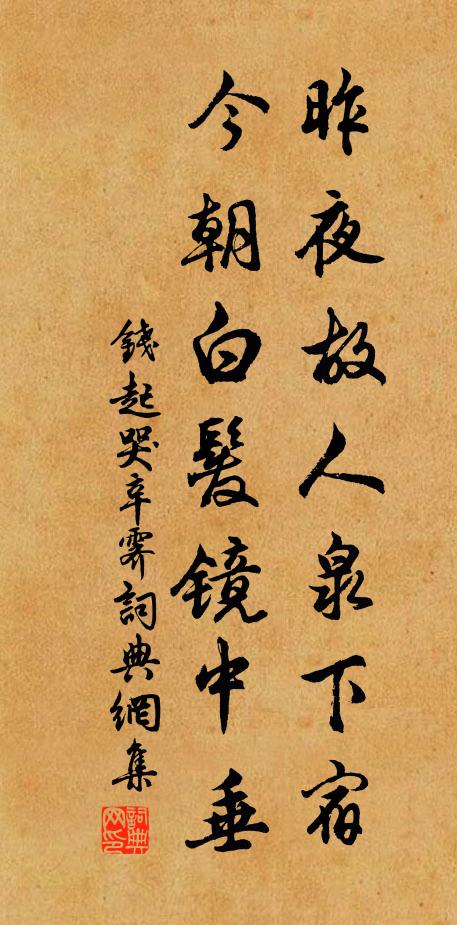 昨夜故人泉下宿
今朝白髮镜中垂
錢起哭辛霁詞典網集
詞典网印